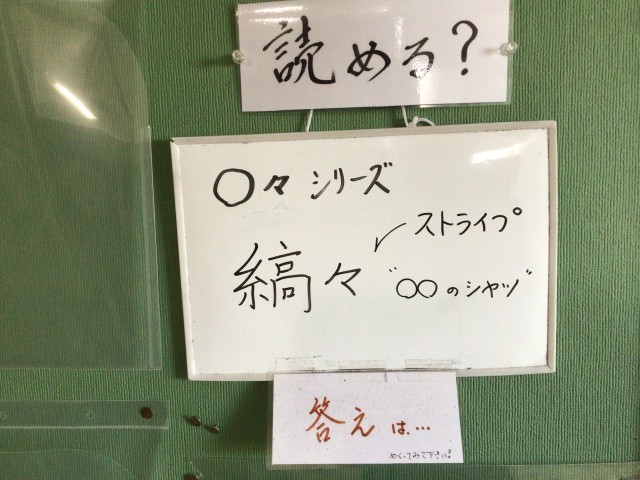 読める?
〇々 シリーズ
ストライプ
縞々
"〇〇のシャツ"
答えは…
めくってみて下さい!